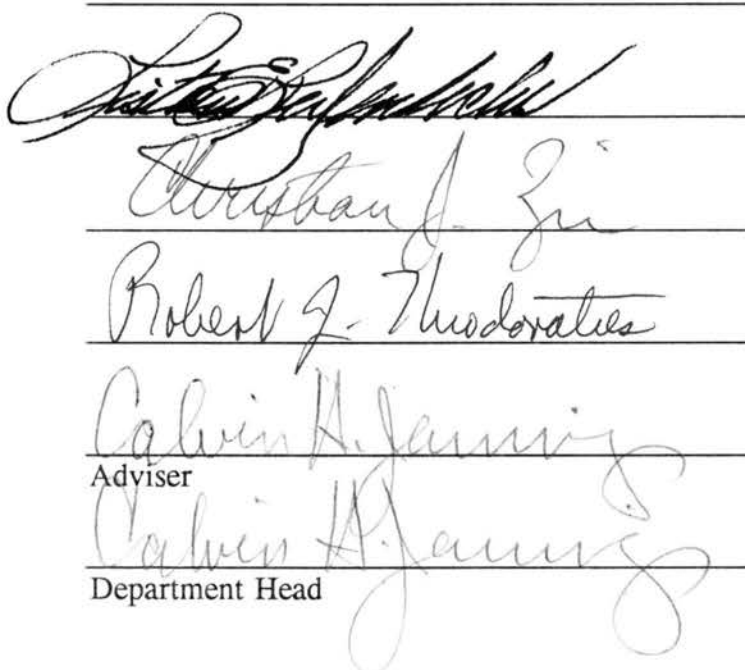 Christian J.
Robert J. Theodoratus
Calvin H. Jennings
Adviser
Calvin H. Jennings
Department Head